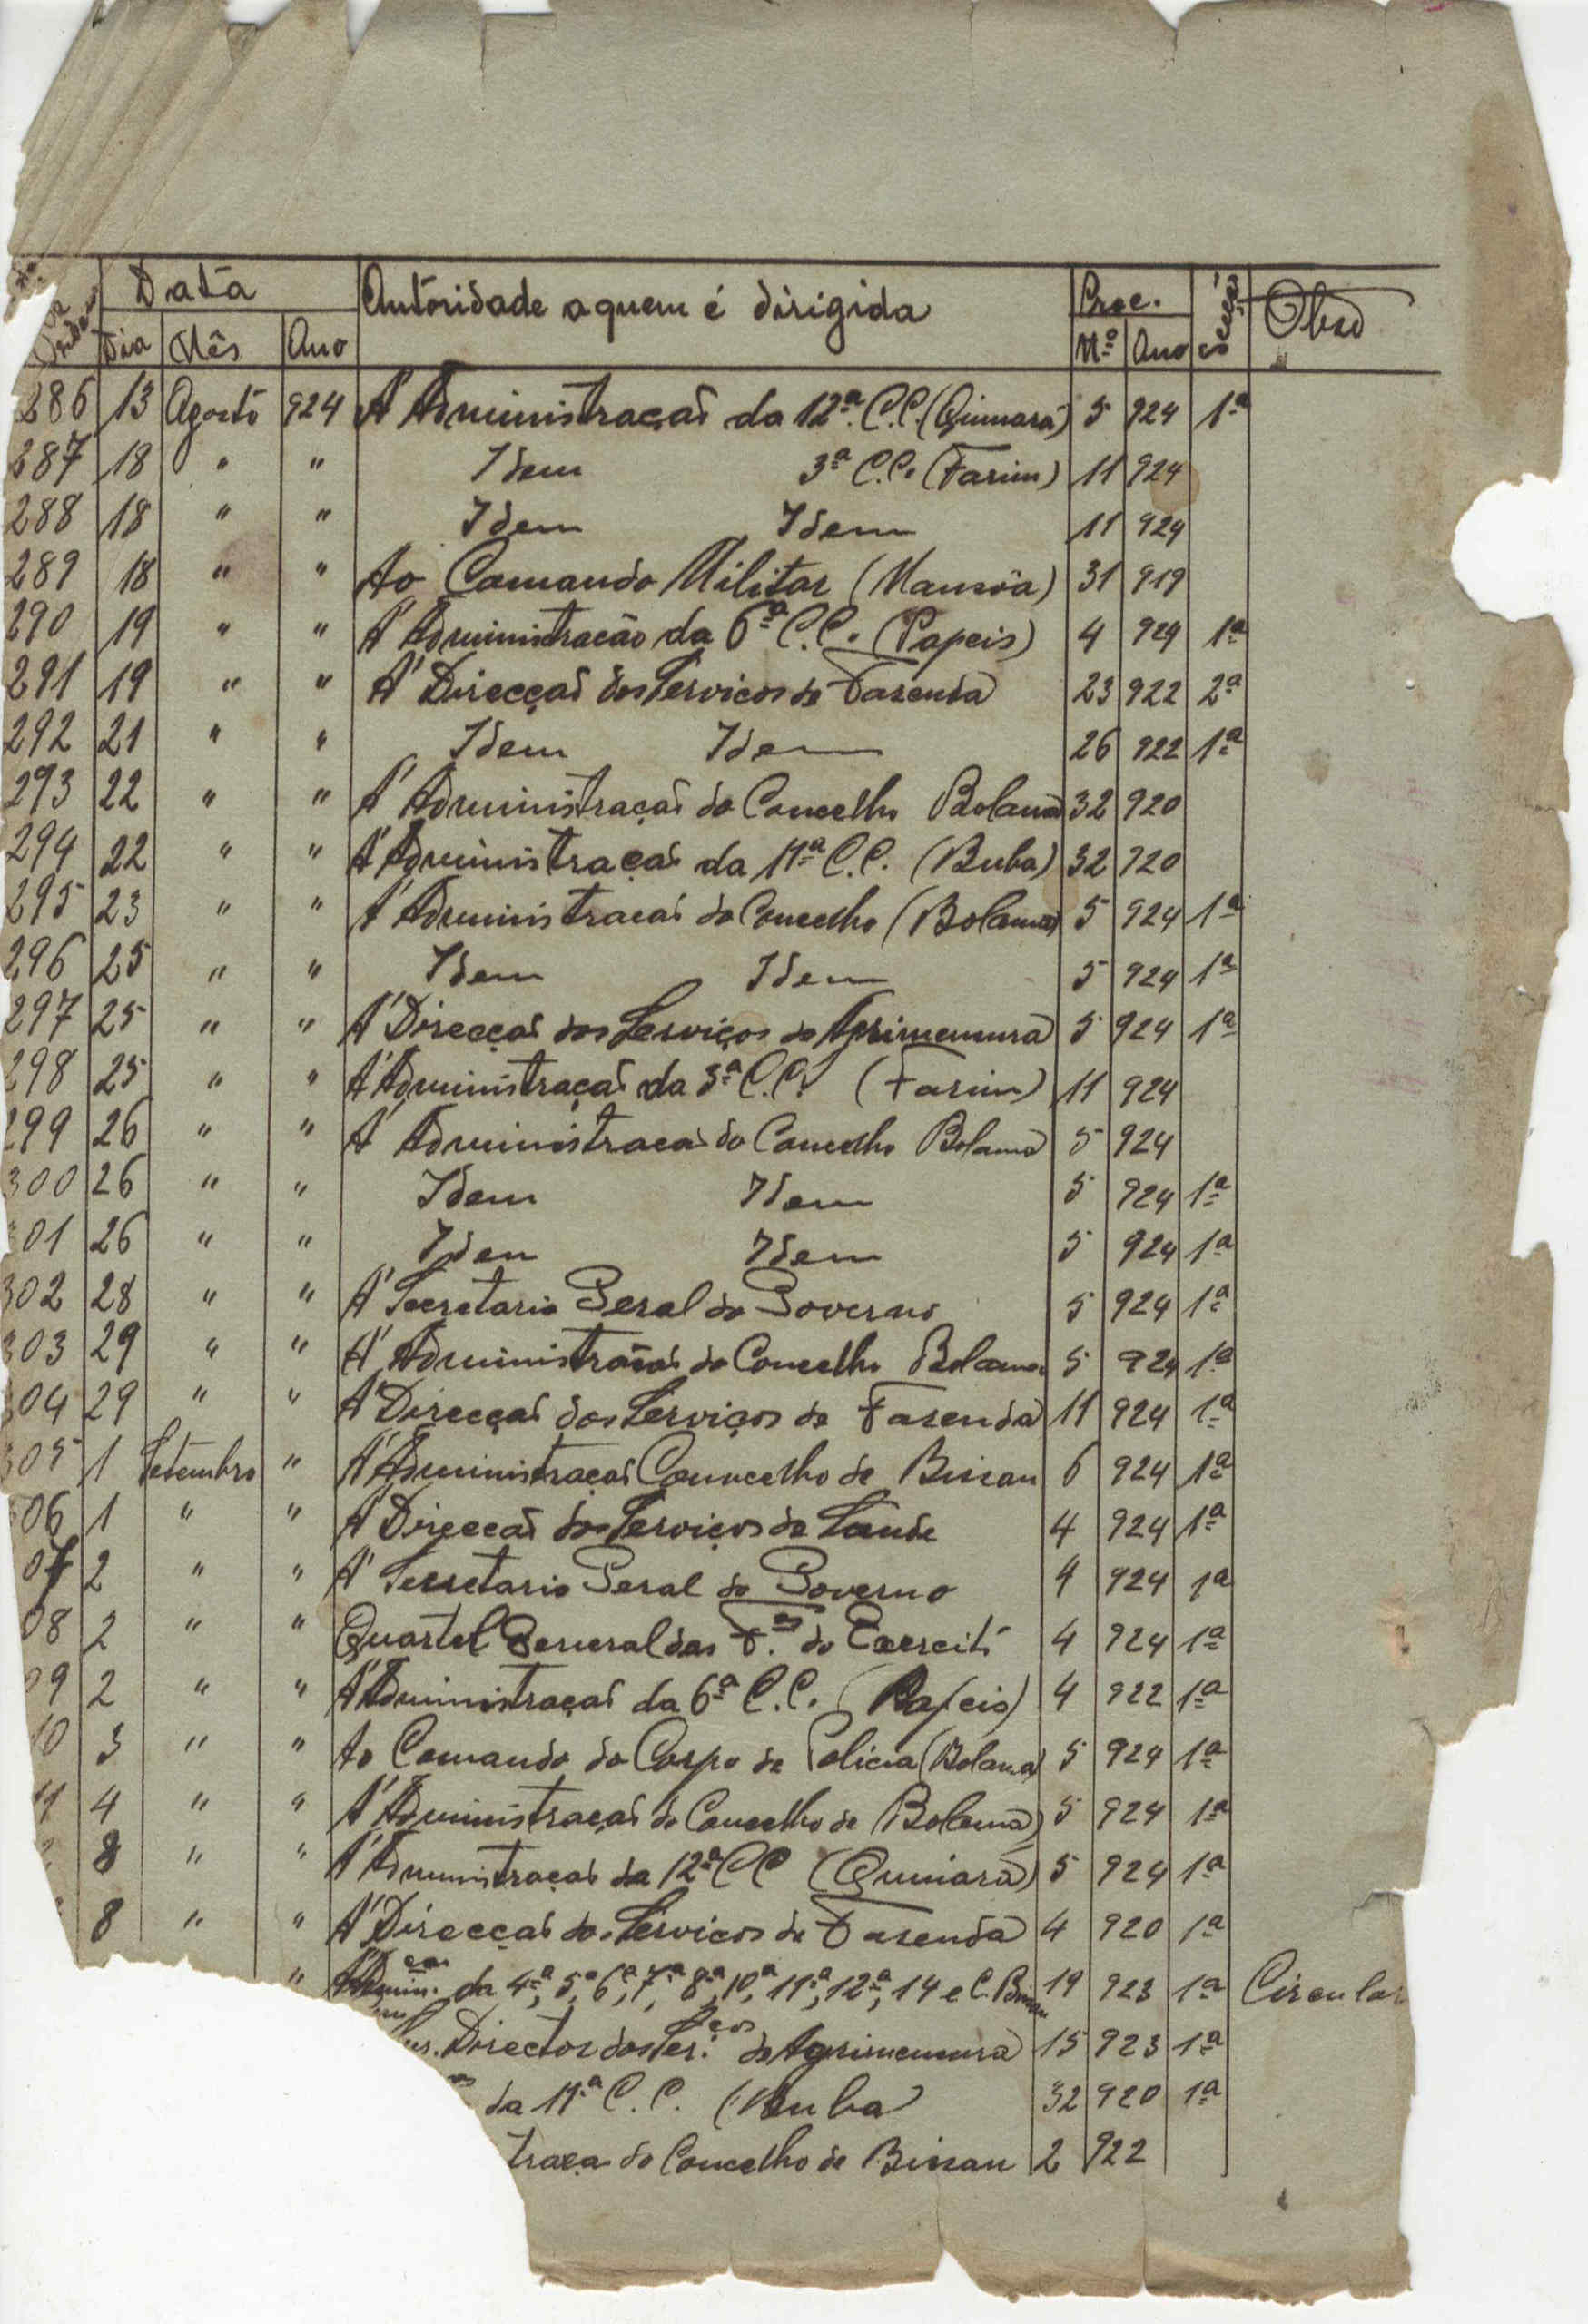 Data Autoridade a quem é dirigida Proc. Secção Obs
Dia Mês Ano Nº Ano
286 13 Agosto 924 Á Administraçaõ da 12ª C.C. (Quinará) 5 924 1ª
287 18 " " Idem 3ª C.C. (Farim) 11 924
288 18 " " Idem Idem 11 924
289 18 " " Ao Comando Militar (Mansôa) 31 919
290 19 " " Á Administracão da 6ª C.C. (Papeis) 4 924 1ª
291 19 " " Á Direcçaõ dos Servicos de Fazenda 23 922 2ª
292 21 " " Idem Idem 26 922 1ª
293 22 " " Á Administraçaõ do Concelho Bolama 32 920
294 22 " " Á Administraçaõ da 11ª C.C. (Buba) 32 920
295 23 " " Á Administracaõ do Concelho (Bolama) 5 924 1ª
296 25 " " Idem Idem 5 924 1ª
297 25 " " Á Direcçaõ dos Serviços de Agrimemura 5 924 1ª
298 25 " " Á Administraçaõ da 3ª C.C. (Farim) 11 924
299 26 " " Á Administracaõ do Concelho Bolama 5 924
300 26 " " Idem Idem 5 924 1ª
01 26 " " Idem Idem 5 924 1ª
302 28 " " Á Secretaria Geral do Governo 5 924 1ª
303 29 " " Á Administraçaõ do Concelho Bolama 5 924 1ª
304 29 " " Á Direcçaõ dos Serviços de Fazenda 11 924 1ª
305 1 Setembro " Á Administraçaõ Councelho de Bissau 6 924 1ª
06 1 " " Á Direccaõ dos Serviços de Saude 4 924 1ª
07 2 " " Á Secretaria Geral do Governo 4 924 1ª
08 2 " " Quartel General das F.as do Exercitó 4 924 1ª
09 2 " " Á Administraçaõ da 6ª C.C. (Papeis) 4 922 1ª
10 3 " " Ao Comando do Corpo de Policia (Bolama) 5 924 1ª
11 4 " " Á Administraçaõ do Concelho de (Bolama) 5 924 1ª
8 " " Á Administraçaõ da 12ª C C (Quinará) 5 924 1ª
8 " " Á Direcçaõ dos Servicos de Fazenda 4 920 1ª
" Admin.ções da 4ª, 5ª, 6ª, 7ª, 8ª, 10ª, 11ª, 12ª, 14 e C. Bissau 19 923 1ª Circular
Director dos Ser.ços de Agrimemura 15 923 1ª
da 11ª C.C. (Buba 32 920 1ª
traça do Concelho de Bissau 2 922